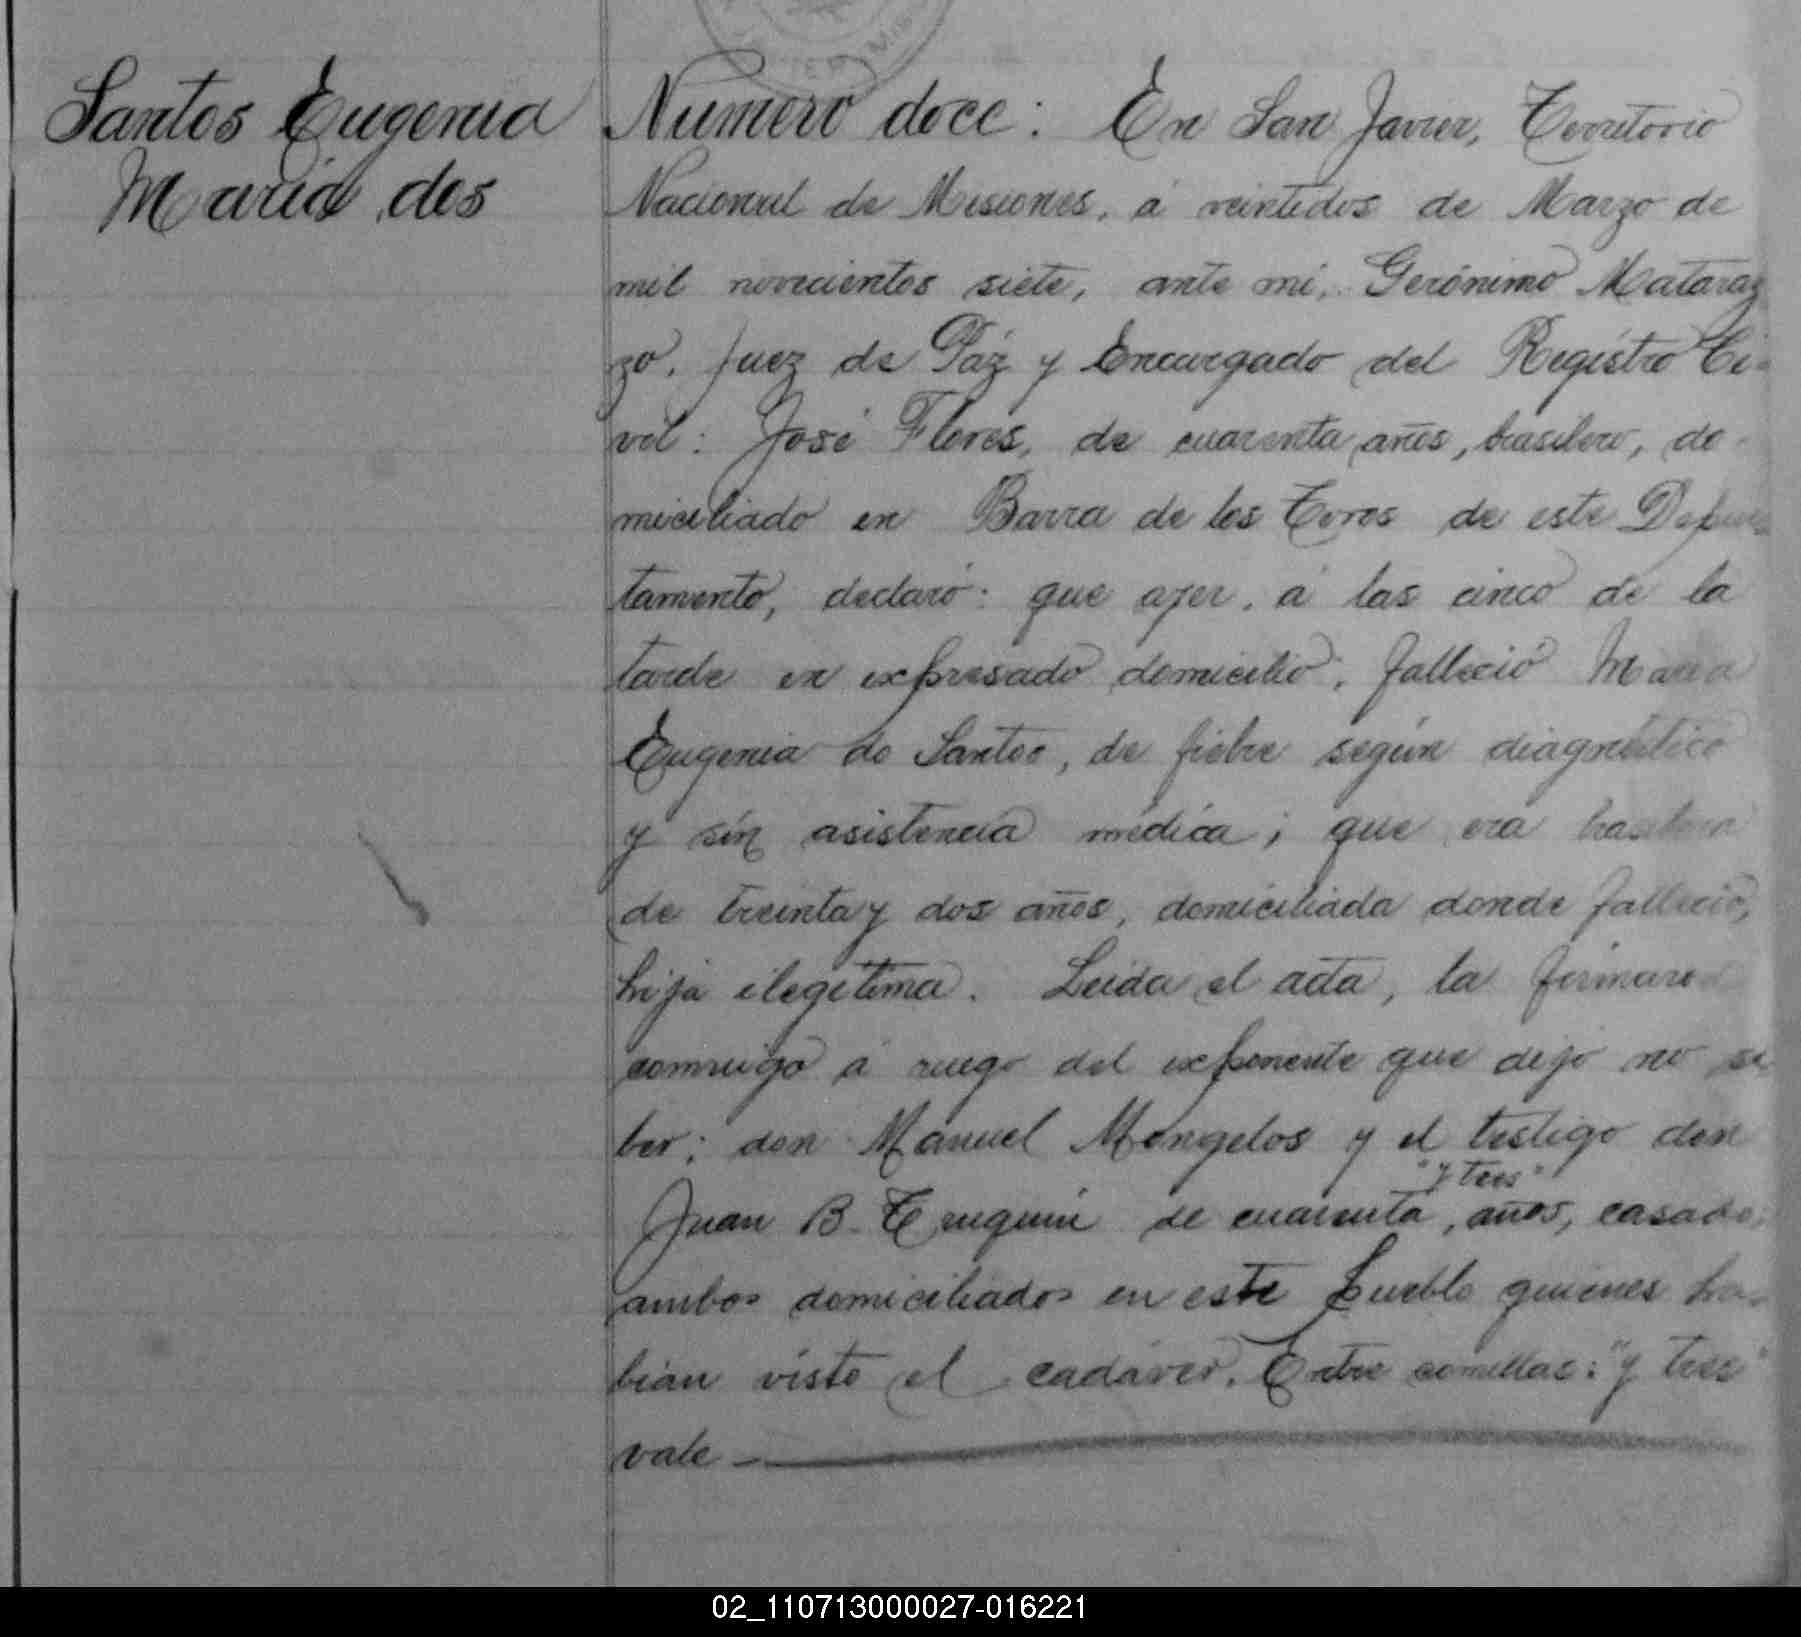 Santos Eugenia
Maria dos
Numero doce: En San Javier, Territorio
Nacional de Misiones, á veintidos de Marzo de
mil novecientos siete, ante mi, Gerónimo Mataraz
zo, Juez de Páz y Encargado del Registro Ci-
vil: José Flores, de cuarenta años, brasilero, do-
miciliado en Barra de los Toros de este Depar-
tamento, declaró: que ayer, á las cinco de la
tarde en expresado domicilio, falleció Maria
Eugenia do Santos, de fiebre según diagnóstico
y sin asistencia médica; que era brasilera
de treinta y dos años, domiciliada donde falleció,
hija ilegitima. Leida el acta, la firmaron
conmigo á ruego del exponente que dijo no sa
ber; don Manuel Mongelos y el testigo don
"y tres"
Juan B. de cuarenta, años, casado,
ambos domiciliados en este Pueblo quienes ha-
bian visto el cadáver. Entre comillas: "y tres"
vale
02_110713000027-016221